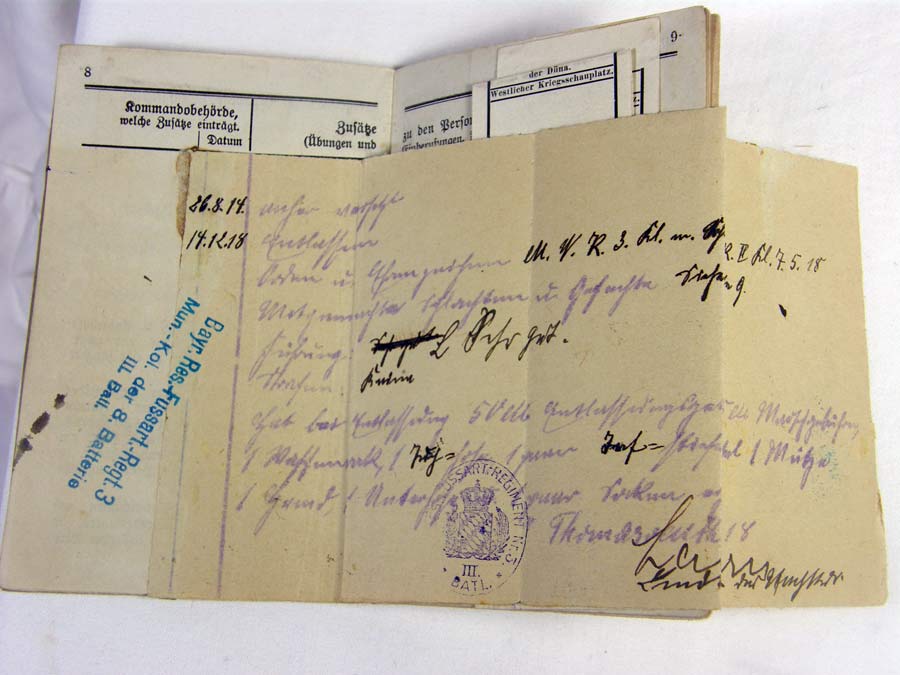 8
Kommandobehörde,
welche Zusätze einträgt.
Datum
Zusätze
(Übungen und
9
zu den Person
(Einberufungen,
der Düna.
Westlicher Kriegsschauplatz.
26.8.14. anher versetzt
14.12.18 Entlassen
Orden u. Ehrenzeichen M. V. K. 3. Kl. m. Schw.
K. II Kl. 7. 5. 18
Mitgemachte Schlachten u. Gefechte Siehe
Führung: Sehr gut.
Strafen: Keine
Hat bei Entlassung 50 M Entlassungsgeld M Marschgebühren,
1 Waffenrock, 1 Tuch= hose 1 paar 1 Mütze
1 Hemd, 1 Unterhose 1 paar Socken
18
Bayr. Res.-Fussart.-Regt. 3
Mun.-Kol. der 8. Batterie
III. Batl.
FUSSART.-REGIMENT NR. 3.
III.
BATL.